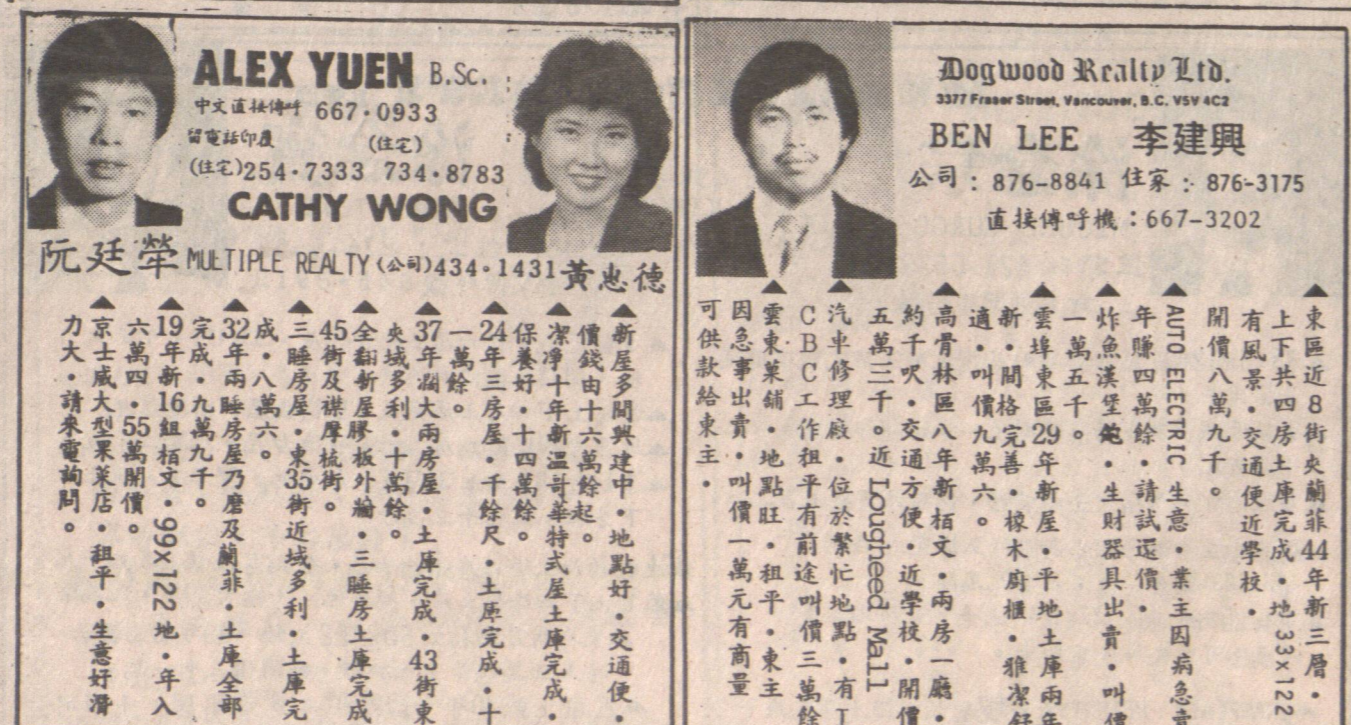 ALEX YUEN B.Sc.
中文直接傳呼 667·0933
留電話印覆 (住宅)
(住宅)254·7333 734·8783
CATHY WONG
阮廷犖 MULTIPLE REALTY (公司)434·1431 黃忠德
▲新屋多間興建中·地點好·交通便·
價錢由十六萬餘起。
▲潔净十年新溫哥華特式屋土庫完成·
保養好·十四萬餘。
▲24年三房屋·千餘尺·土庫完成·十
一萬餘。
▲37年濶大兩房屋·土庫完成·43街東
夾域多利·十萬餘。
▲全翻新屋膠板外牆·三睡房土庫完成
45街及襟摩梳街。
▲三睡房屋·東35街近域多利·土庫完
成·八萬六。
▲32年兩睡房屋乃磨及蘭菲·土庫全部
完成·九萬九千。
▲19年新16組栢文·99x122地·年入
六萬四·55萬開價。
▲京士威大型果菜店·租平·生意好潛
力大·請來電詢問。
Dogwood Realty Ltd.
3377 Fraser Street, Vancouver, B.C. V5V 4C2
BEN LEE 李建興
公司：876-8841 住家：876-3175
直接傳呼機：667-3202
▲東區近8街夾蘭菲44年新三層·
上下共四房土庫完成·地33x122
有風景·交通便近學校·
開價八萬九千。
▲AUTO ELECTRIC 生意·業主因病急
年賺四萬餘·請試還價·
▲炸魚漢堡飽·生財器具出賣·叫價
一萬五千。
▲雲埠東區29年新屋·平地土庫兩年
新·間格完善·橡木廚櫃·雅潔舒
適·叫價九萬六。
▲高骨林區八年新栢文·兩房一廳·
約千呎·交通方便·近學校·開價
五萬三千。近 Lougheed Mall
▲汽車修理廠·位於繁忙地點·有I
CBC工作租平有前途叫價三萬餘
▲雲東菓舖·地點旺·租平·東主
因急事出賣·叫價一萬元有商量
可供款給東主·